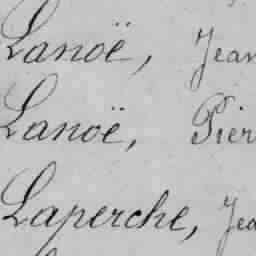 Lanoë, Jean
Lanoë, Pier
Laperche, Jea